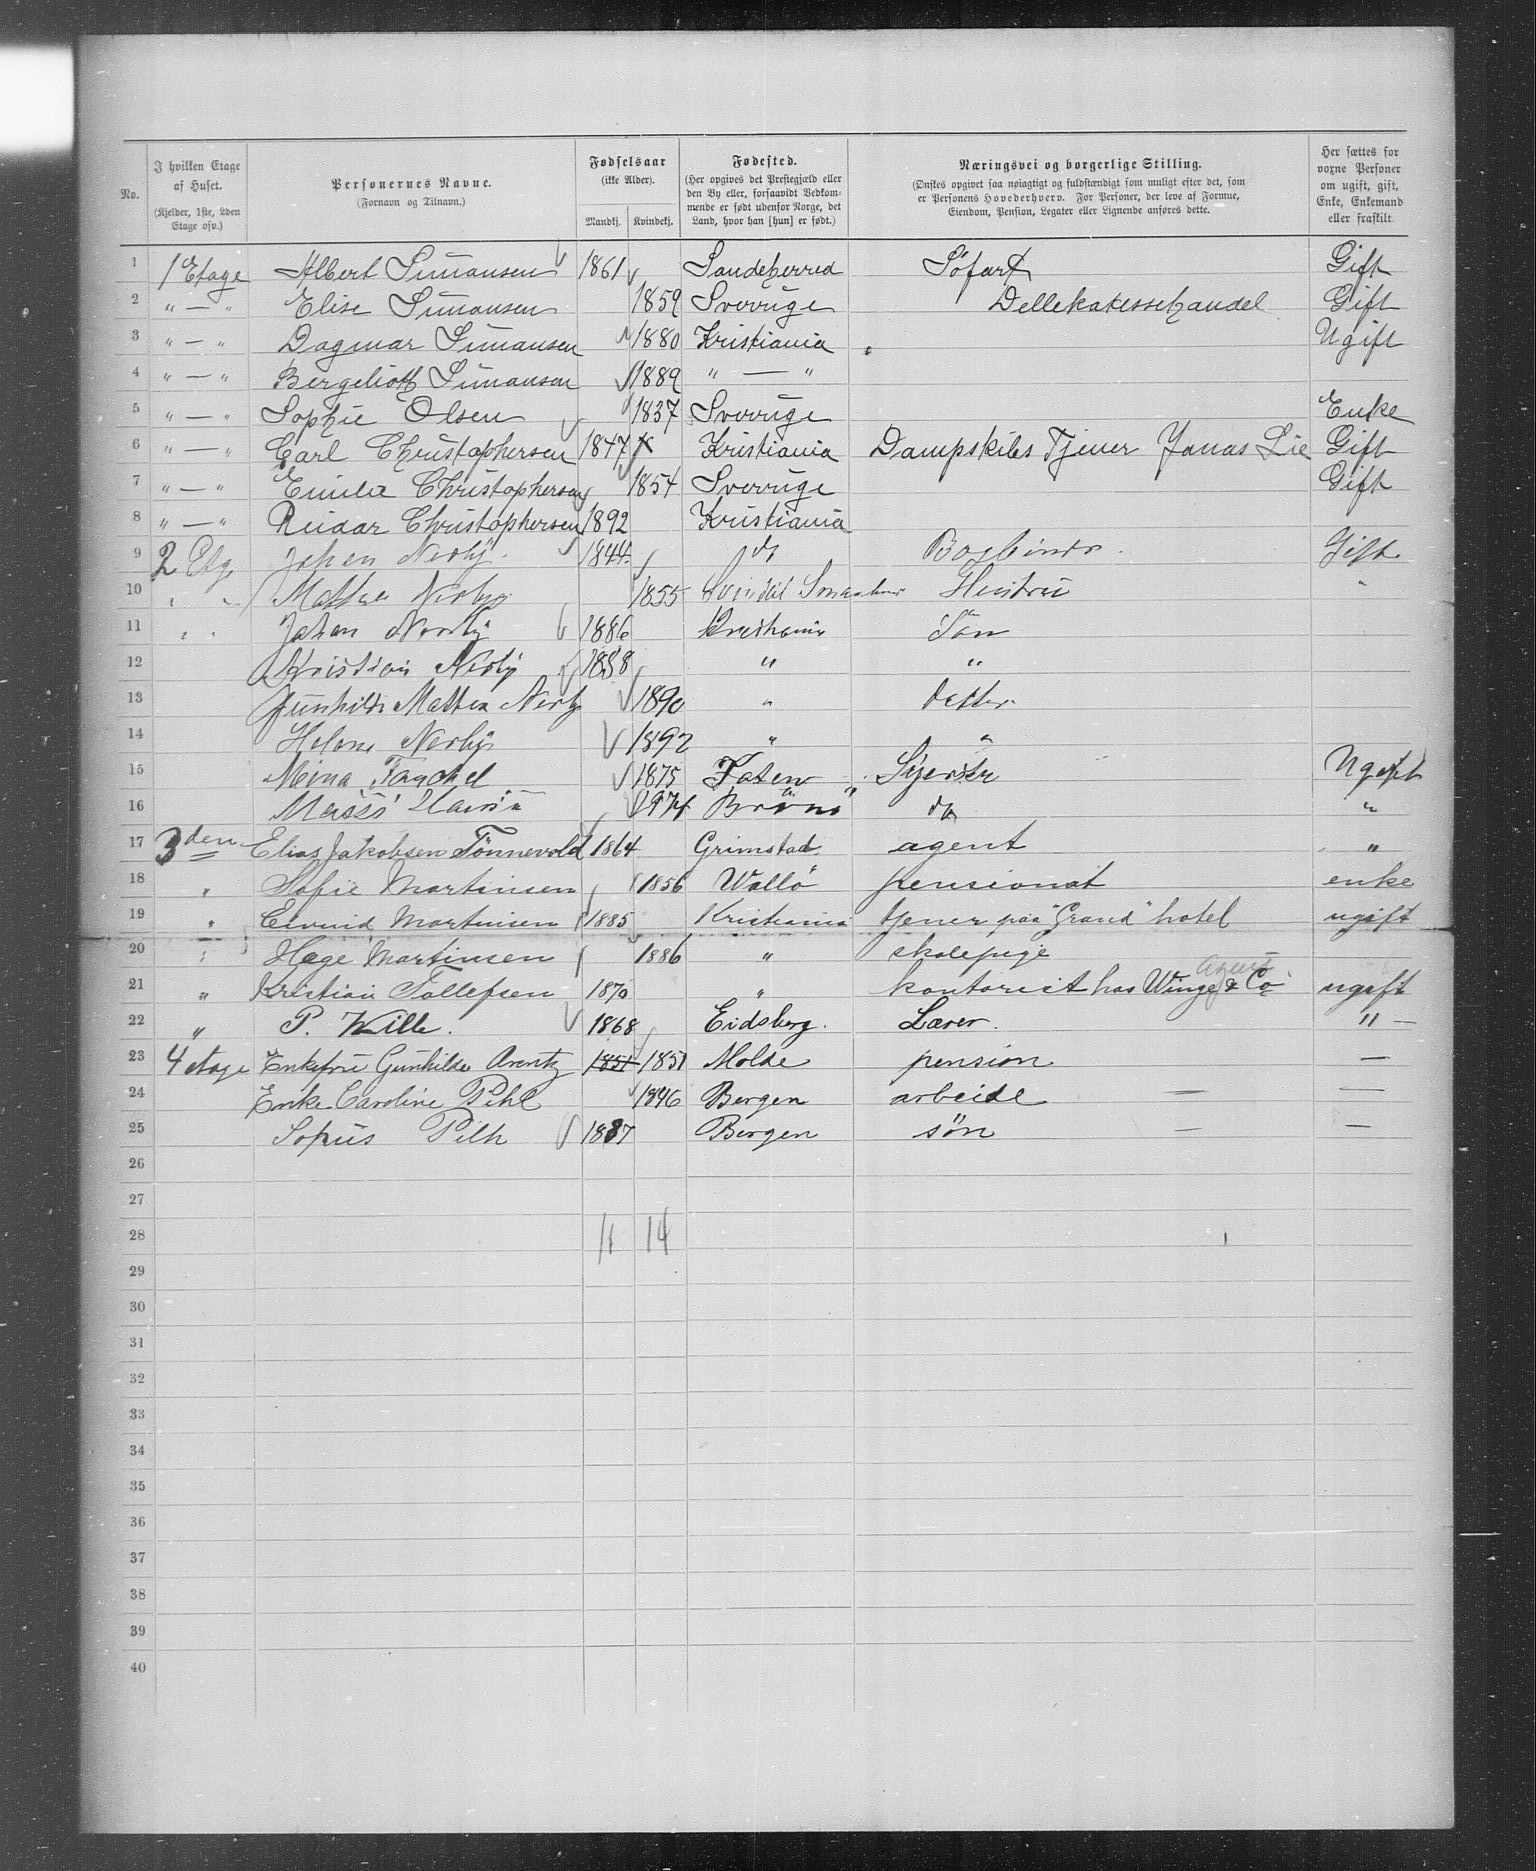 No.
I hvilken Etage af Huset.
(Kjelder, 1ste, 2den Etage osv.)
Personernes Navne.
(Fornavn og Tilnavn.)
Fødselsaar
(ikke Alder).
Mandkj. Kvindekj.
Fødested.
(Her opgives det Prestegjæld eller den By eller, forsaavidt Vedkommende er født udenfor Norge, det Land, hvor han [hun] er født.)
Næringsvei og borgerlige Stilling.
(Ønskes opgivet saa nøiagtigt og fuldstændigt som muligt efter det, som er Personens Hovederhverv. For Personer, der leve af Formue, Eiendom, Pension, Legater eller Lignende anføres dette.
Her sættes for voxne Personer om ugift, gift, Enke, Enkemand eller fraskilt.
1 1 Etage Albert Simansen 1861 Sandeherred Söfart Gift
2 " — " Elise Simansen 1859 Sverrige Dellekatessehandel Gift
3 " — " Dagmar Simansen 1880 Kristiania Ugift
4 " — " Bergelioth Simansen 1889 " — "
5 " — " Sophie Olsen 1837 Sverrige Enke
6 " — " Carl Christophersen 1847 Kristiania Dampskibs Tjener Jonas Lie Gift
7 " — " Emila Christophersen 1854 Sverrige Gift
8 " — " Reidar Christophersen 1892 Kristiania
9 2 Etg Johan Nerby 1844 do Bogbinder Gift
10 " " Mathea Nerby 1855 Hustru "
11 " " Johan Nerby 1886 Kristiania Sön
12 Kristian Nerby 1888 " "
13 Gunhild Mathea Nerby 1890 " datter
14 Helene Nerby 1892 " "
15 Mina 1875 Syerske Ugift
16 do "
17 3den Elias Jakobsen Tönnevold 1864 Grimstad agent "
18 " Sofie Martinsen 1856 Vallö pensionat enke
19 " Eivind Martinsen 1885 Kristiania tjener paa "Grand" hotel ugift
20 " Hage Martinsen 1886 " skolepige
21 " Kristian Tollefsen 1870 " kontorist hos Winge & Co Agent ugift
22 " P. Wille. 1868 Eidsberg. Lærer. " —
23 4 etage Enkefru Gunhilde Arentz 1851 1851 Molde pension —
24 Enke Caroline Pihl 1846 Bergen arbeide — —
25 Sofus Pilh 1887 Bergen sön — —
26
27
28 11 14
29
30
31
32
33
34
35
36
37
38
39
40